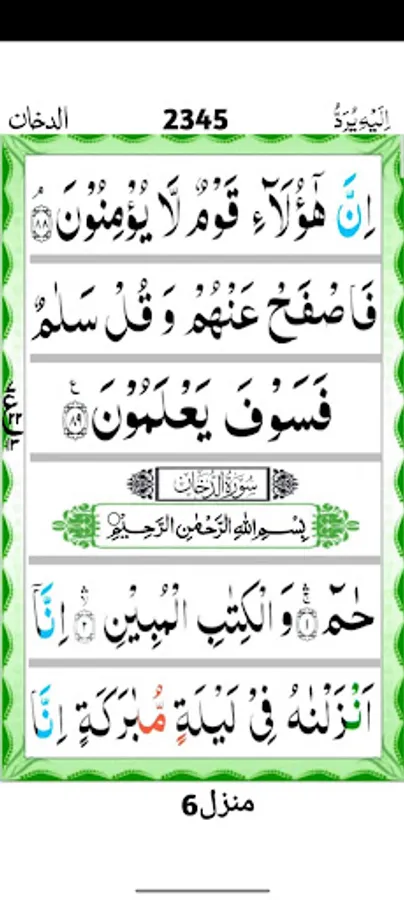 اِلَیْهِ یُرَدُّ 2345 الدخان
اِنَّ هٰۤؤُلَآءِ قَوْمٌ لَّا یُؤْمِنُوْنَۘ ۝۸۸
فَاصْفَحْ عَنْهُمْ وَ قُلْ سَلٰمٌؕ
فَسَوْفَ یَعْلَمُوْنَ ۝۸۹ ع
سُوْرَةُ الدُّخَان
بِسْمِ اللّٰهِ الرَّحْمٰنِ الرَّحِیْمِ
حٰمٓ ۝۱ وَ الْكِتٰبِ الْمُبِیْنِ ۝۲ اِنَّاۤ
اَنْزَلْنٰهُ فِیْ لَیْلَةٍ مُّبٰرَكَةٍ اِنَّا
منزل6